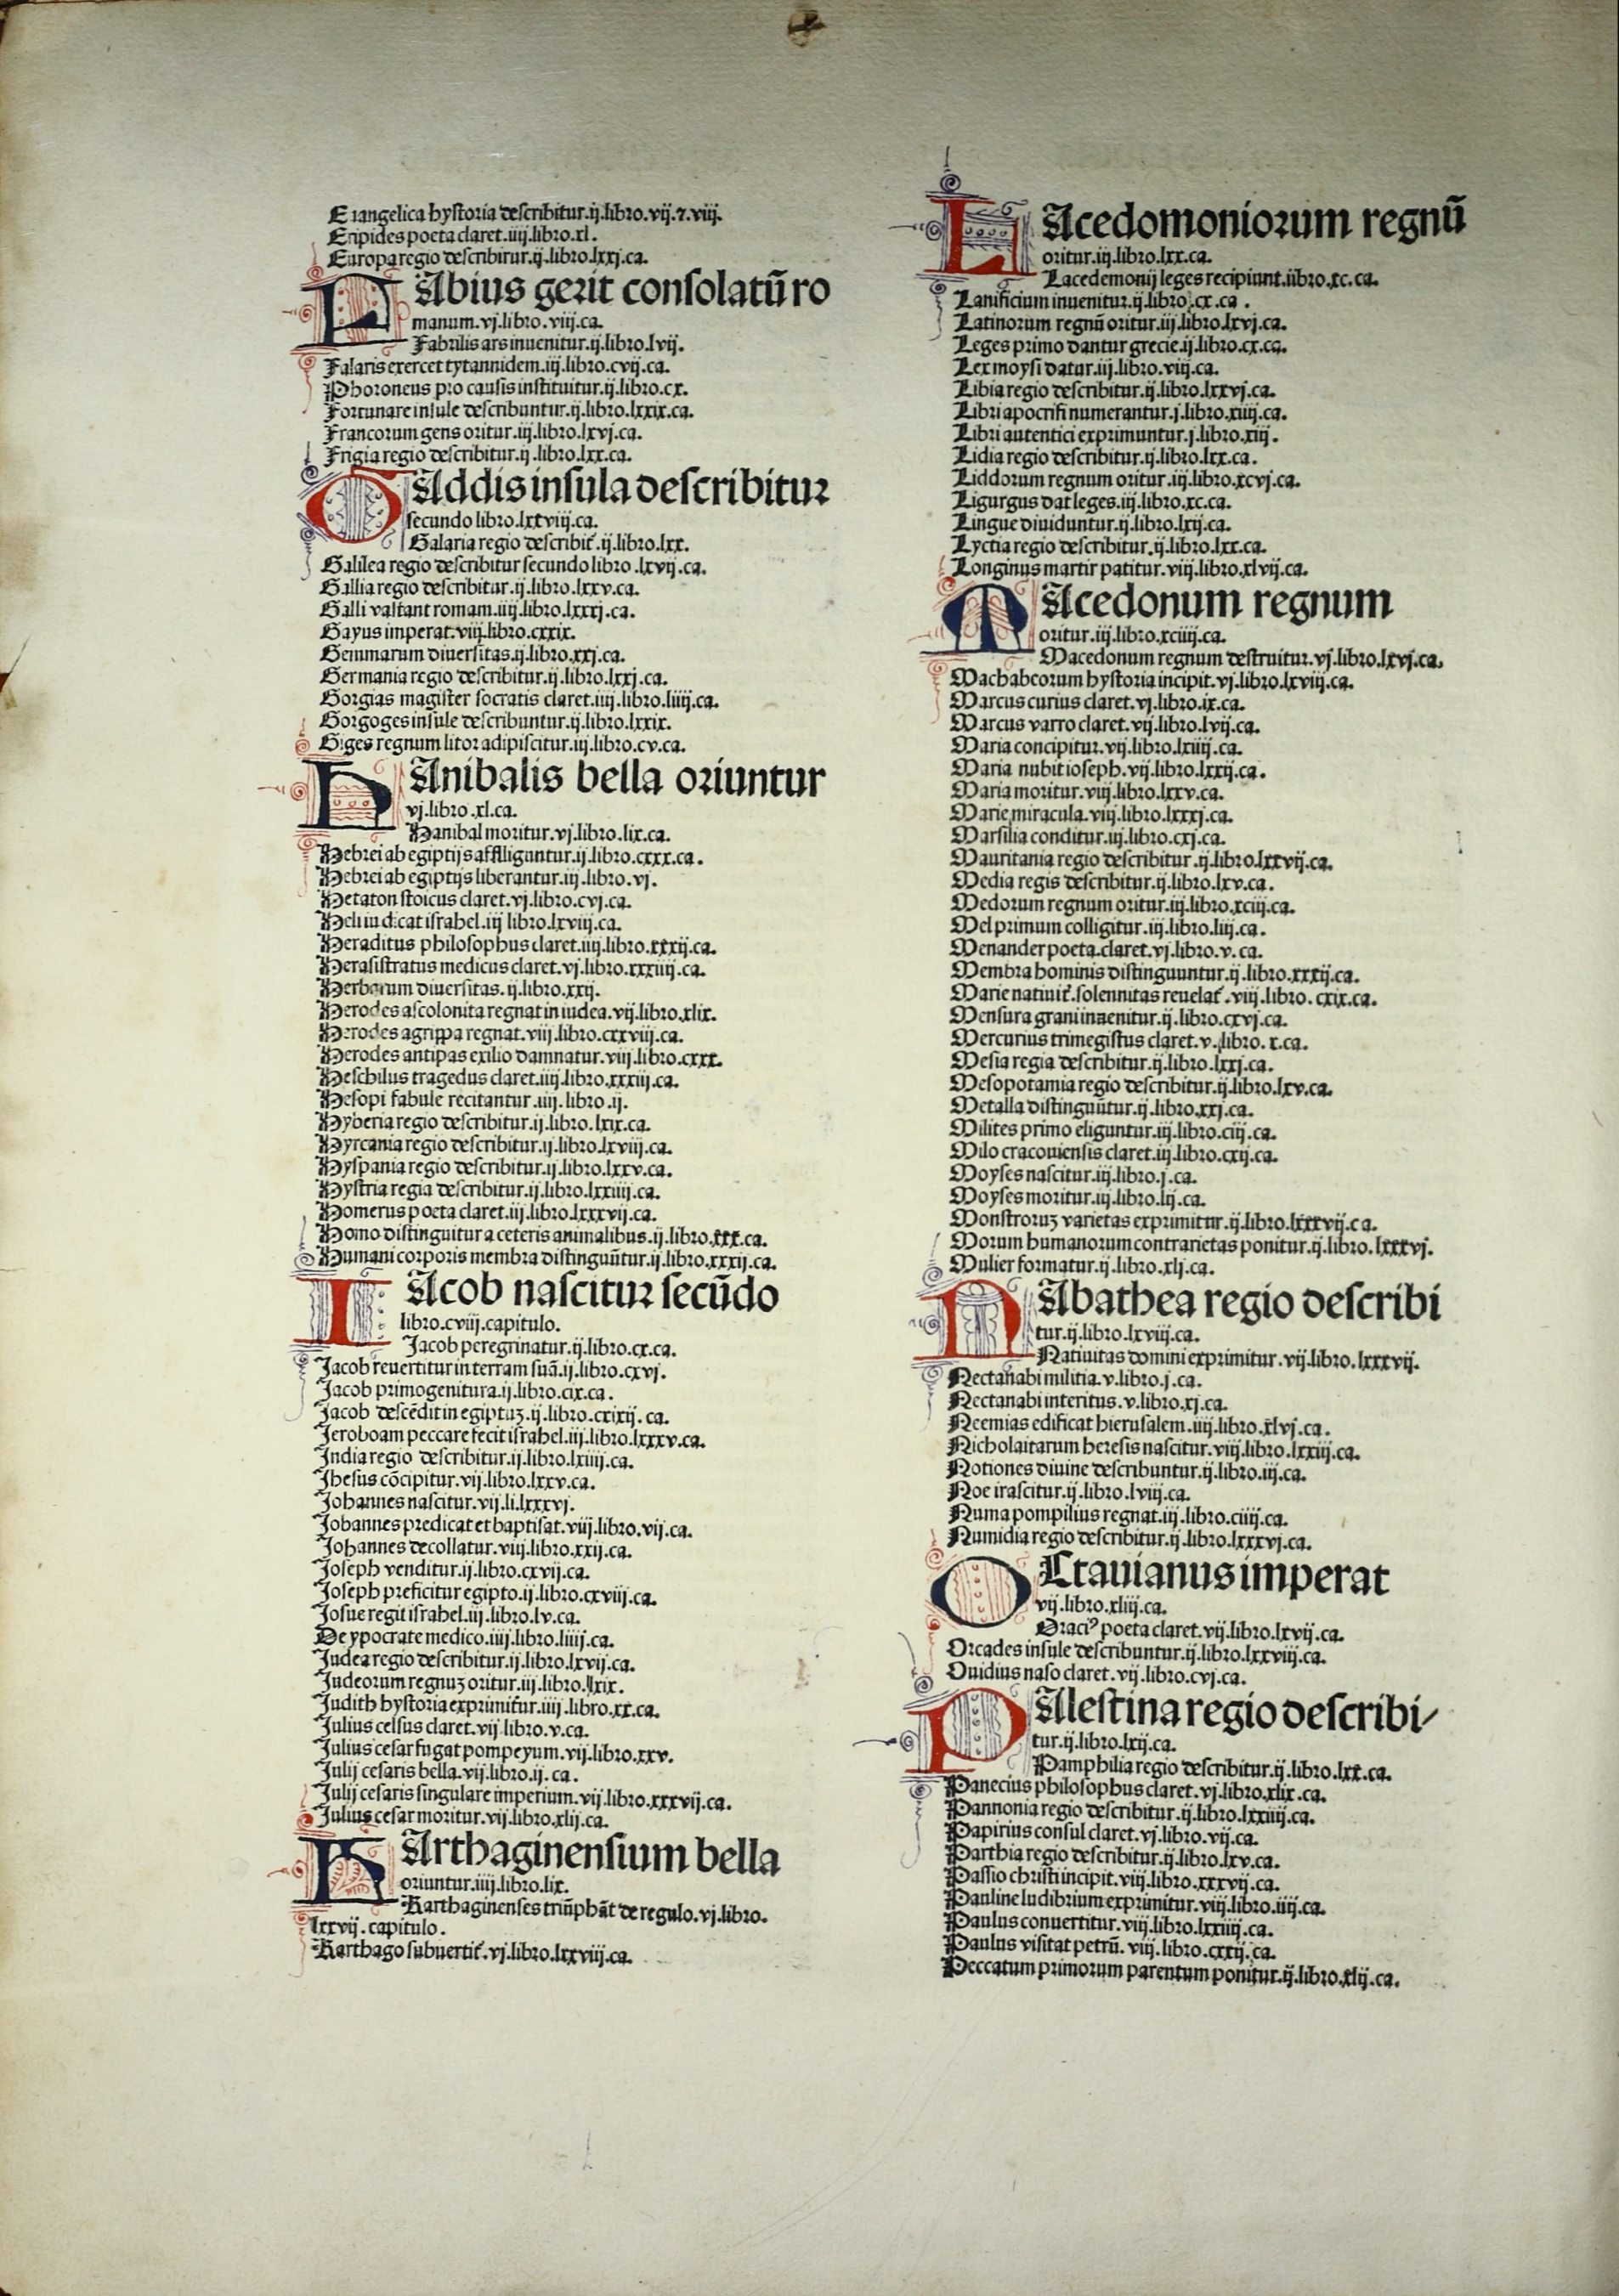 Euangelica hystoria describitur.ij.libro.vij.⁊.viij.
Eripides poeta claret.iiij.libro.xl.
Europa regio describitur.ij.libro.lxxj.ca.
FAbius gerit consolatū ro
manum.vj.libro.viij.ca.
Fabrilis ars inuenitur.ij.libro.lvij.
Falaris exercet tytannidem.iij.libro.cvij.ca.
Phoroneus pro causis instituitur.ij.libro.cx.
Fortunare insule describuntur.ij.libro.lxxix.ca.
Francorum gens oritur.iij.libro.lxvj.ca.
Frigia regio describitur.ij.libro.lxx.ca.
GAddis insula describitur
secundo libro.lxxviij.ca.
Galaria regio describit̃.ij.libro.lxx.
Galilea regio describitur secundo libro.lxvij.ca.
Gallia regio describitur.ij.libro.lxxv.ca.
Galli vastant romam.iiij.libro.lxxxj.ca.
Gayus imperat.viij.libro.cxxix.
Gemmarum diuersitas.ij.libro.xxj.ca.
Germania regio describitur.ij.libro.lxxj.ca.
Gorgias magister socratis claret.iiij.libro.liiij.ca.
Gorgoges insule describuntur.ij.libro.lxxix.
Giges regnum litor adipiscitur.iij.libro.cv.ca.
HAnibalis bella oriuntur
vj.libro.xl.ca.
Hanibal moritur.vj.libro.lix.ca.
Hebrei ab egiptijs affliguntur.ij.libro.cxxx.ca.
Hebrei ab egiptijs liberantur.iij.libro.vj.
Hetaton stoicus claret.vj.libro.cvj.ca.
Heli iudicat israhel.iij libro.lxviij.ca.
Heraditus philosophus claret.iiij.libro.xxxij.ca.
Herasistratus medicus claret.vj.libro.xxxiiij.ca.
Herbarum diuersitas.ij.libro.xxij.
Herodes ascolonita regnat in iudea.vij.libro.xlix.
Herodes agrippa regnat.viij.libro.cxxviij.ca.
Herodes antipas exilio damnatur.viij.libro.cxxx.
Heschilus tragedus claret.iiij.libro.xxxiij.ca.
Hesopi fabule recitantur.iiij.libro.ij.
Hyberia regio describitur.ij.libro.lxix.ca.
Hyrcania regio describitur.ij.libro.lxviij.ca.
Hyspania regio describitur.ij.libro.lxxv.ca.
Hystria regia describitur.ij.libro.lxxiiij.ca.
Homerus poeta claret.iij.libro.lxxxvij.ca.
Homo distinguitur a ceteris animalibus.ij.libro.xxx.ca.
Humani corporis membra distinguūtur.ij.libro.xxxij.ca.
IAcob nascitur secūdo
libro.cviij.capitulo.
Jacob peregrinatur.ij.libro.cx.ca.
Jacob reuertitur in terram suā.ij.libro.cxvj.
Jacob primogenitura.ij.libro.cix.ca.
Jacob descēdit in egiptuꝫ.ij.libro.cxixij.ca.
Jeroboam peccare fecit israhel.iij.libro.lxxxv.ca.
India regio describitur.ij.libro.lxiiij.ca.
Jhesus cōcipitur.vij.libro.lxxv.ca.
Johannes nascitur.vij.li.lxxxvj.
Johannes predicat et baptisat.viij.libro.vij.ca.
Johannes decollatur.viij.libro.xxij.ca.
Joseph venditur.ij.libro.cxvij.ca.
Joseph preficitur egipto.ij.libro.cxviij.ca.
Josue regit israhel.iij.libro.lv.ca.
De ypocrate medico.iiij.libro.liiij.ca.
Judea regio describitur.ij.libro.lxvij.ca.
Judeorum regnuꝫ oritur.iij.libro.lxix.
Judith hystoria exprimitur.iiij.libro.xx.ca.
Julius celsus claret.vij.libro.v.ca.
Julius cesar fugat pompeyum.vij.libro.xxv.
Julij cesaris bella.vij.libro.ij.ca.
Julij cesaris singulare imperium.vij.libro.xxxvij.ca.
Julius cesar moritur.vij.libro.xlij.ca.
KArthaginensium bella
oriuntur.iiij.libro.lix.
Karthaginenses triūphāt de regulo.vj.libro.
lxxvij.capitulo.
Karthago subuertit̃.vj.libro.lxxviij.ca.
LAcedomoniorum regnū
oritur.iij.libro.lxx.ca.
Lacedemonij leges recipiunt.iibro.xc.ca.
Lanificium inuenitur.ij.libro.cx.ca.
Latinorum regnū oritur.iij.libro.lxvj.ca.
Leges primo dantur grecie.ij.libro.cx.ca.
Lex moysi datur.iij.libro.viij.ca.
Libia regio describitur.ij.libro.lxxvj.ca.
Libri apocrifi numerantur.j.libro.xiiij.ca.
Libri autentici exprimuntur.j.libro.xiij.
Lidia regio describitur.ij.libro.lxx.ca.
Liddorum regnum oritur.iij.libro.xcvj.ca.
Ligurgus dat leges.iij.libro.xc.ca.
Lingue diuiduntur.ij.libro.lxij.ca.
Lyctia regio describitur.ij.libro.lxx.ca.
Longinus martir patitur.viij.libro.xlvij.ca.
MAcedonum regnum
oritur.iij.libro.xciiij.ca.
Macedonum regnum destruitur.vj.libro.lxvj.ca.
Machabeorum hystoria incipit.vj.libro.lxviij.ca.
Marcus curius claret.vj.libro.ix.ca.
Marcus varro claret.vij.libro.lvij.ca.
Maria concipitur.vij.libro.lxiiij.ca.
Maria nubit ioseph.vij.libro.lxxij.ca.
Maria moritur.viij.libro.lxxv.ca.
Marie miracula.viij.libro.lxxxj.ca.
Marsilia conditur.iij.libro.cxj.ca.
Mauritania regio describitur.ij.libro.lxxvij.ca.
Media regis describitur.ij.libro.lxv.ca.
Medorum regnum oritur.iij.libro.xciij.ca.
Mel primum colligitur.iij.libro.liij.ca.
Menander poeta.claret.vj.libro.v.ca.
Membra hominis distinguuntur.ij.libro.xxxij.ca.
Marie natiuit̃.solennitas reuelat̃.viij.libro.cxix.ca.
Mensura grani inuenitur.ij.libro.cxvj.ca.
Mercurius trimegistus claret.v.libro.x.ca.
Mesia regia describitur.ij.libro.lxxj.ca.
Mesopotamia regio describitur.ij.libro.lxv.ca.
Metalla distinguūtur.ij.libro.xxj.ca.
Milites primo eliguntur.iij.libro.ciij.ca.
Milo cracouiensis claret.iij.libro.cxij.ca.
Moyses nascitur.iij.libro.j.ca.
Moyses moritur.iij.libro.lij.ca.
Monstroruꝫ varietas exprimitur.ij.libro.lxxxvij.ca.
Morum humanorum contrarietas ponitur.ij.libro.lxxxvj.
Mulier formatur.ij.libro.xlj.ca.
NAbathea regio describi
tur.ij.libro.lxviij.ca.
Natiuitas domini exprimitur.vij.libro.lxxxvij.
Nectanabi militia.v.libro.j.ca.
Nectanabi interitus.v.libro.xj.ca.
Neemias edificat hierusalem.iiij.libro.xlvj.ca.
Nicholaitarum heresis nascitur.viij.libro.lxxiij.ca.
Notiones diuine describuntur.ij.libro.iij.ca.
Noe irascitur.ij.libro.lviij.ca.
Numa pompilius regnat.iij.libro.ciiij.ca.
Numidia regio describitur.ij.libro.lxxxvj.ca.
OCtauianus imperat
vij.libro.xliij.ca.
Oraciꝰ poeta claret.vij.libro.lxvij.ca.
Orcades insule describuntur.ij.libro.lxxviij.ca.
Ouidius naso claret.vij.libro.cvj.ca.
PAlestina regio describi/
tur.ij.libro.lxij.ca.
Pamphilia regio describitur.ij.libro.lxx.ca.
Panecius philosophus claret.vj.libro.xlix.ca.
Pannonia regio describitur.ij.libro.lxxiiij.ca.
Papirius consul claret.vj.libro.vij.ca.
Parthia regio describitur.ij.libro.lxv.ca.
Passio christi incipit.viij.libro.xxxvij.ca.
Pauline ludibrium exprimitur.viij.libro.iiij.ca.
Paulus conuertitur.viij.libro.lxxiiij.ca.
Paulus visitat petrū.viij.libro.cxxij.ca.
Peccatum primorum parentum ponitur.ij.libro.xlij.ca.